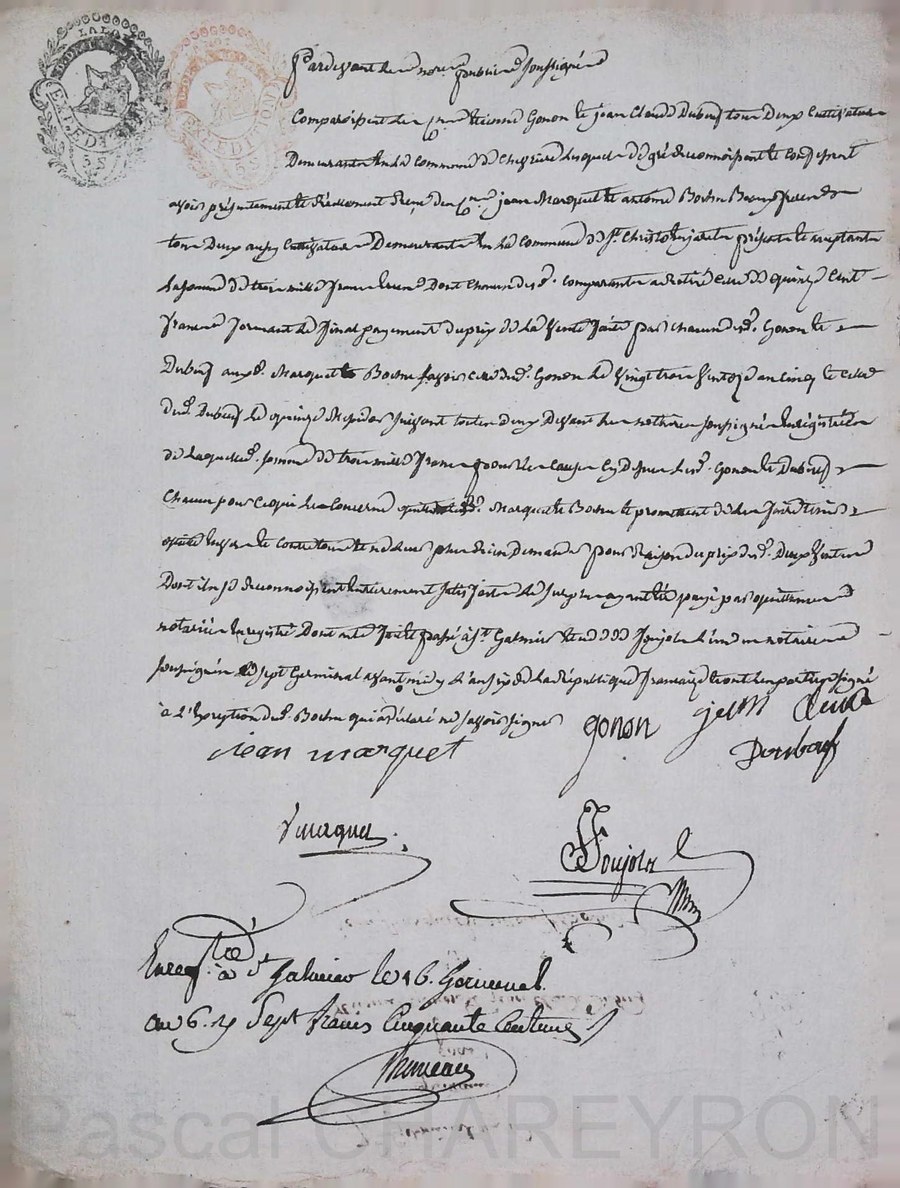 LA LOI
EXPEDI
LA LOI
EXPEDI
Pardevant les notaires publics soussignés
Comparoissent les Cens etienne Gonon et jean Claude Dubœuf tous Deux Cultivateurs
Demeurants En la commune de lesquels de gré Reconnoissent et confessent
avoir présentement et Réellement Reçu des Cens jean Marquet et antoine Boehm
tous Deux aussy Cultivateurs Demeurants En la commune de St. Christo présents et acceptants
La somme de trois mille francs Dont chacun des d. comparants a Retiré Celle de quinze Cent
francs formant le final payement du prix de la Vente faite par chacun des d. Gonon et
Dubœuf aux d. Marquet et savoir celle du d. Gonon le Vingt trois Ventose an cinq et celle
du d. Dubœuf le quinze Messidor suivant toutes Deux Devant les notaires soussignés Enregistrées
de laquelle somme de trois mille francs pour les causes Cy Dessus les d. Gonon et Dubœuf
Chacun pour ce qui les Concerne quittent les d. Marquet et promettent de les faire tenir
quittes Envers et contre tous et ne leur plus Rien Demander pour Raison du prix des d. Deux Ventes
Dont ils se Reconnoissent Entierement satisfaits le surplus ayant été payé par quittances
notariées Enregistrées Dont acte fait et passé à St. Galmier Etude de Foujols L'un des notaires
soussignés Le sept Germinal avant midy L'an six de la République francaise et ont les parties signé
à L'Exception du d. qui a déclaré ne savoir signer
gonon jean Claude
jean marquet Doubœuf
Foujols
Enregtré à St Galmier le 16. Germinal
an 6. Rç Sept francs Cinquante Centimes
Pascal CHAREYRON